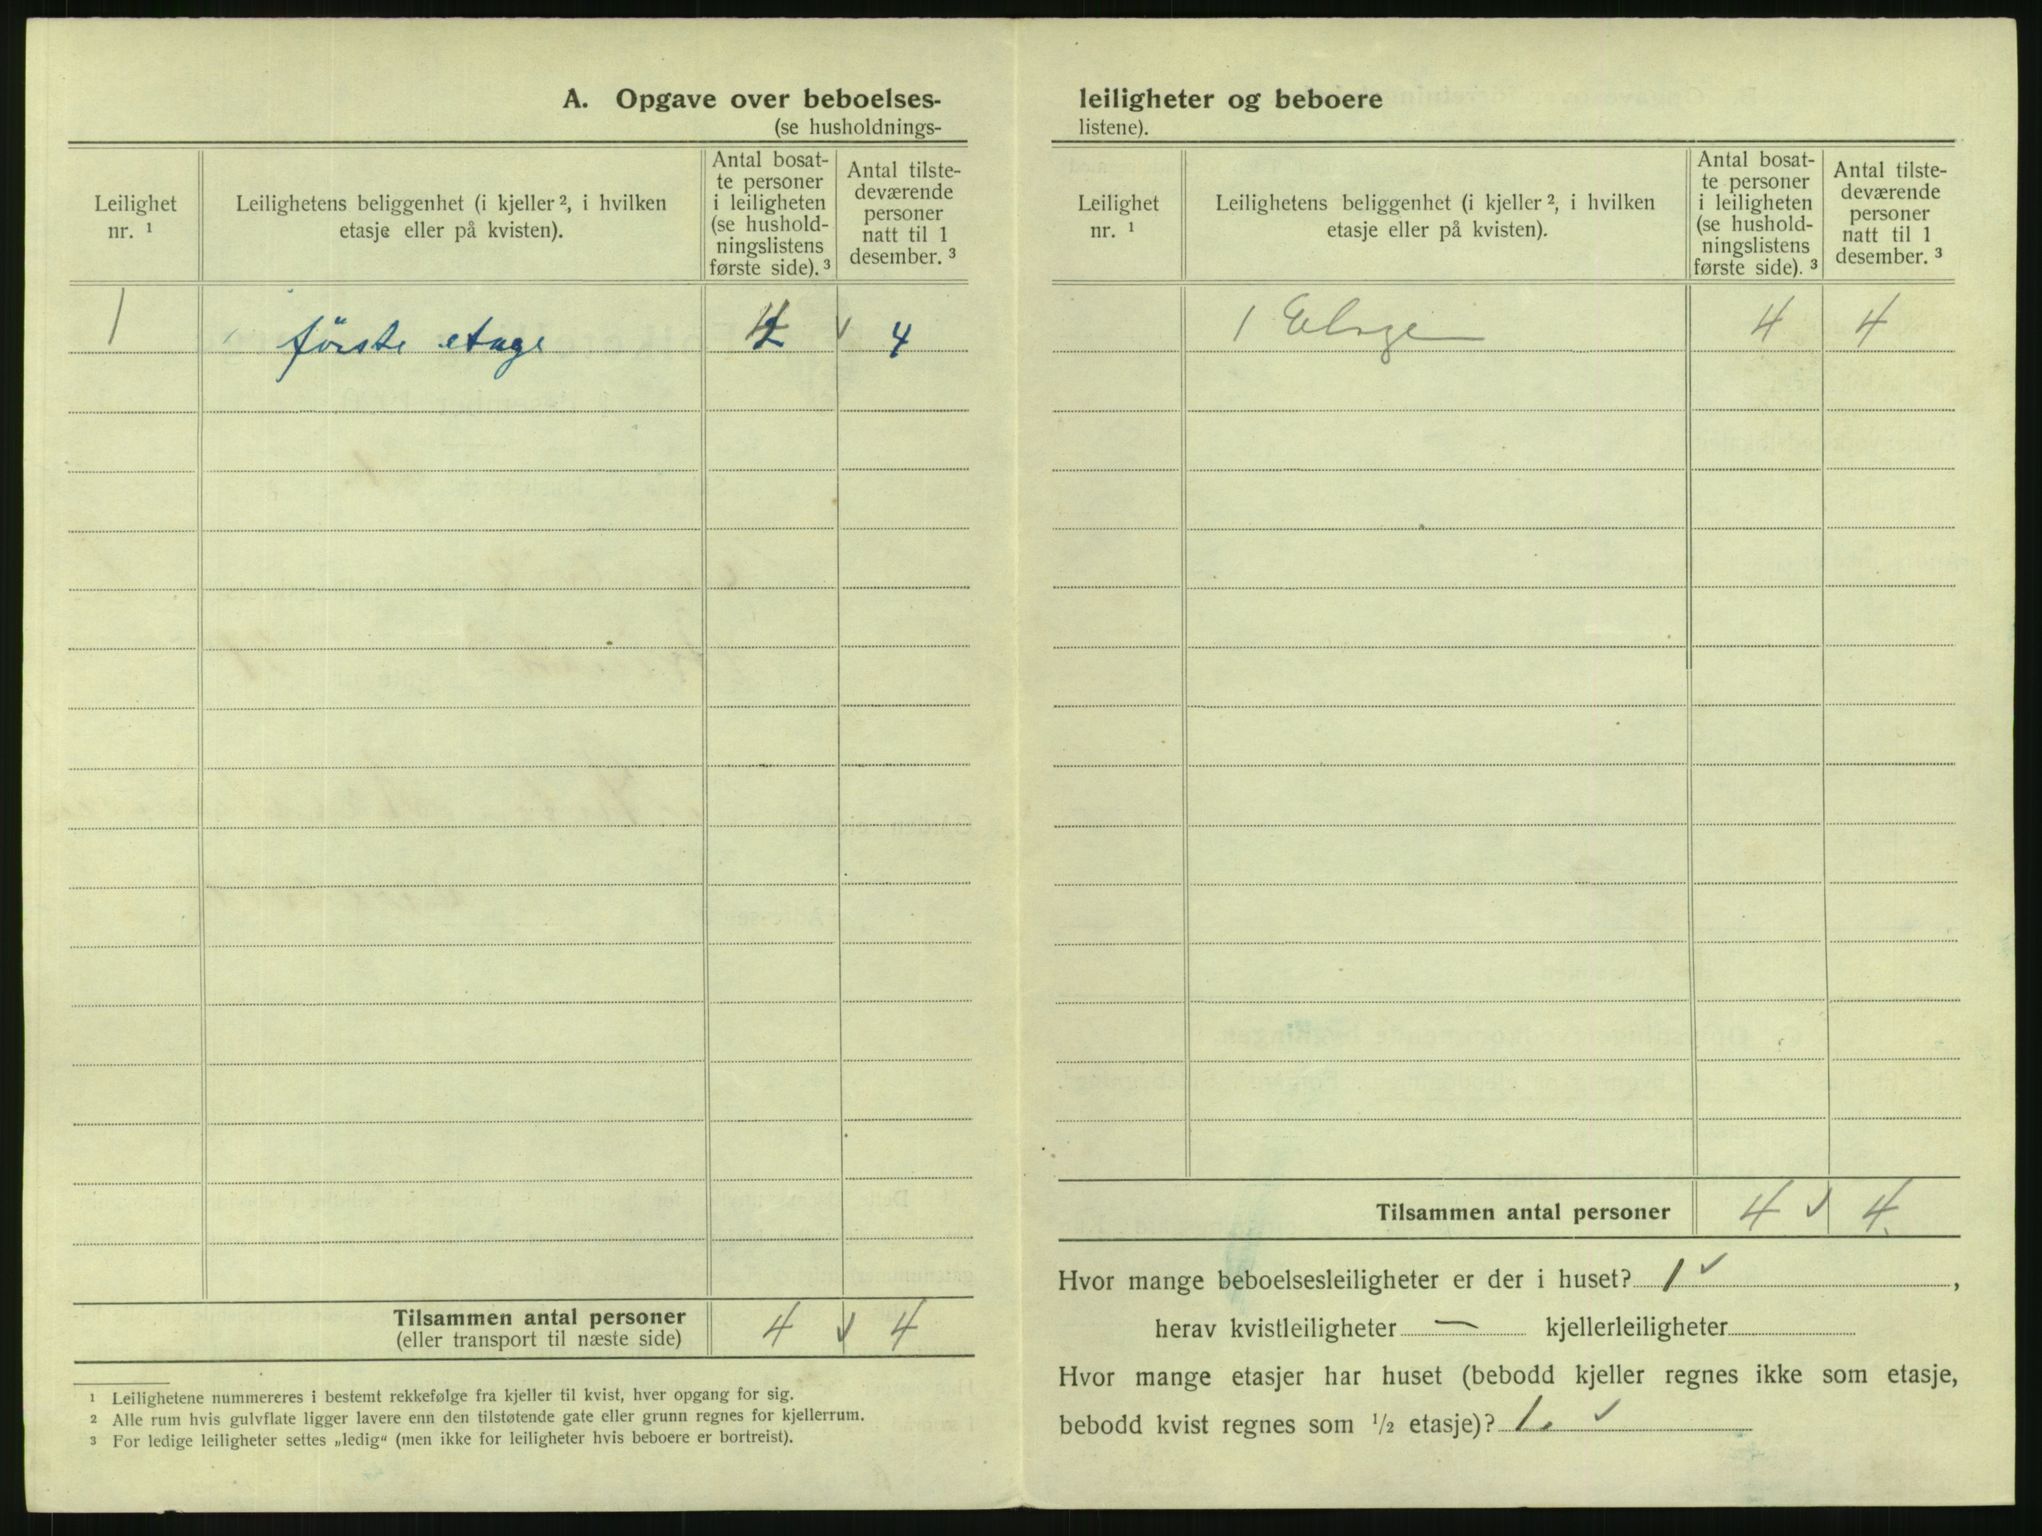 A. Opgave over beboelses-
(se husholdnings-
Leilighet
nr. ¹
Leilighetens beliggenhet (i kjeller ², i hvilken
etasje eller på kvisten).
Antal bosat-
te personer
i leiligheten
(se hushold-
ningslistens
første side). ³
Antal tilste-
deværende
personer
natt til 1
desember. ³
1 første etage 4 4
Tilsammen antal personer 4 4
(eller transport til næste side)
¹ Leilighetene nummereres i bestemt rekkefølge fra kjeller til kvist, hver opgang for sig.
² Alle rum hvis gulvflate ligger lavere enn den tilstøtende gate eller grunn regnes for kjellerrum.
³ For ledige leiligheter settes „ledig“ (men ikke for leiligheter hvis beboere er bortreist).
leiligheter og beboere
listene).
Leilighet
nr. ¹
Leilighetens beliggenhet (i kjeller ², i hvilken
etasje eller på kvisten).
Antal bosat-
te personer
i leiligheten
(se hushold-
ningslistens
første side). ³
Antal tilste-
deværende
personer
natt til 1
desember. ³
1 4 4
Tilsammen antal personer 4 4
Hvor mange beboelsesleiligheter er der i huset? 1 ,
herav kvistleiligheter — kjellerleiligheter
Hvor mange etasjer har huset (bebodd kjeller regnes ikke som etasje,
bebodd kvist regnes som ½ etasje)? 1.